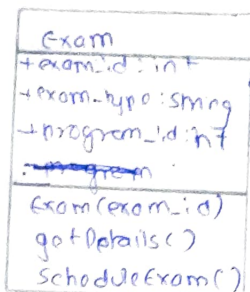 Exam
+exam_id: int
+exam-type: string
+program_id: int
Exam(exam_id)
getDetails()
scheduleExam()